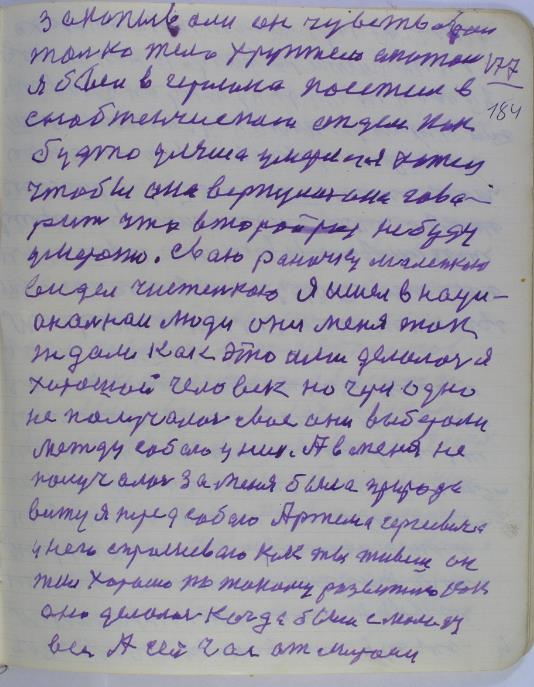 закопив али он чувствовал
только тело хрустело апотом 177
я был в герлика посетил в 184
снабженческом отделе как
будто умерла я хотел
чтобы она вернулась она гава-
рит что второй раз небуду
умерать. Сваю раночку малекаю
видел чистенькаю Я ишел в наци-
анальнаи люди они меня так
ждали как это или делалось я
хороший человек но чери одно
не получалось свое они выберали
между сабаю у них. А в меня не
получалось за меня была природа
вижу я пред собаю Артема сергеевича
у него спрашеваю как ты живеш он
жил хорошо по такому развитию как
оно делалось когда были смолоду
вец А сей час от